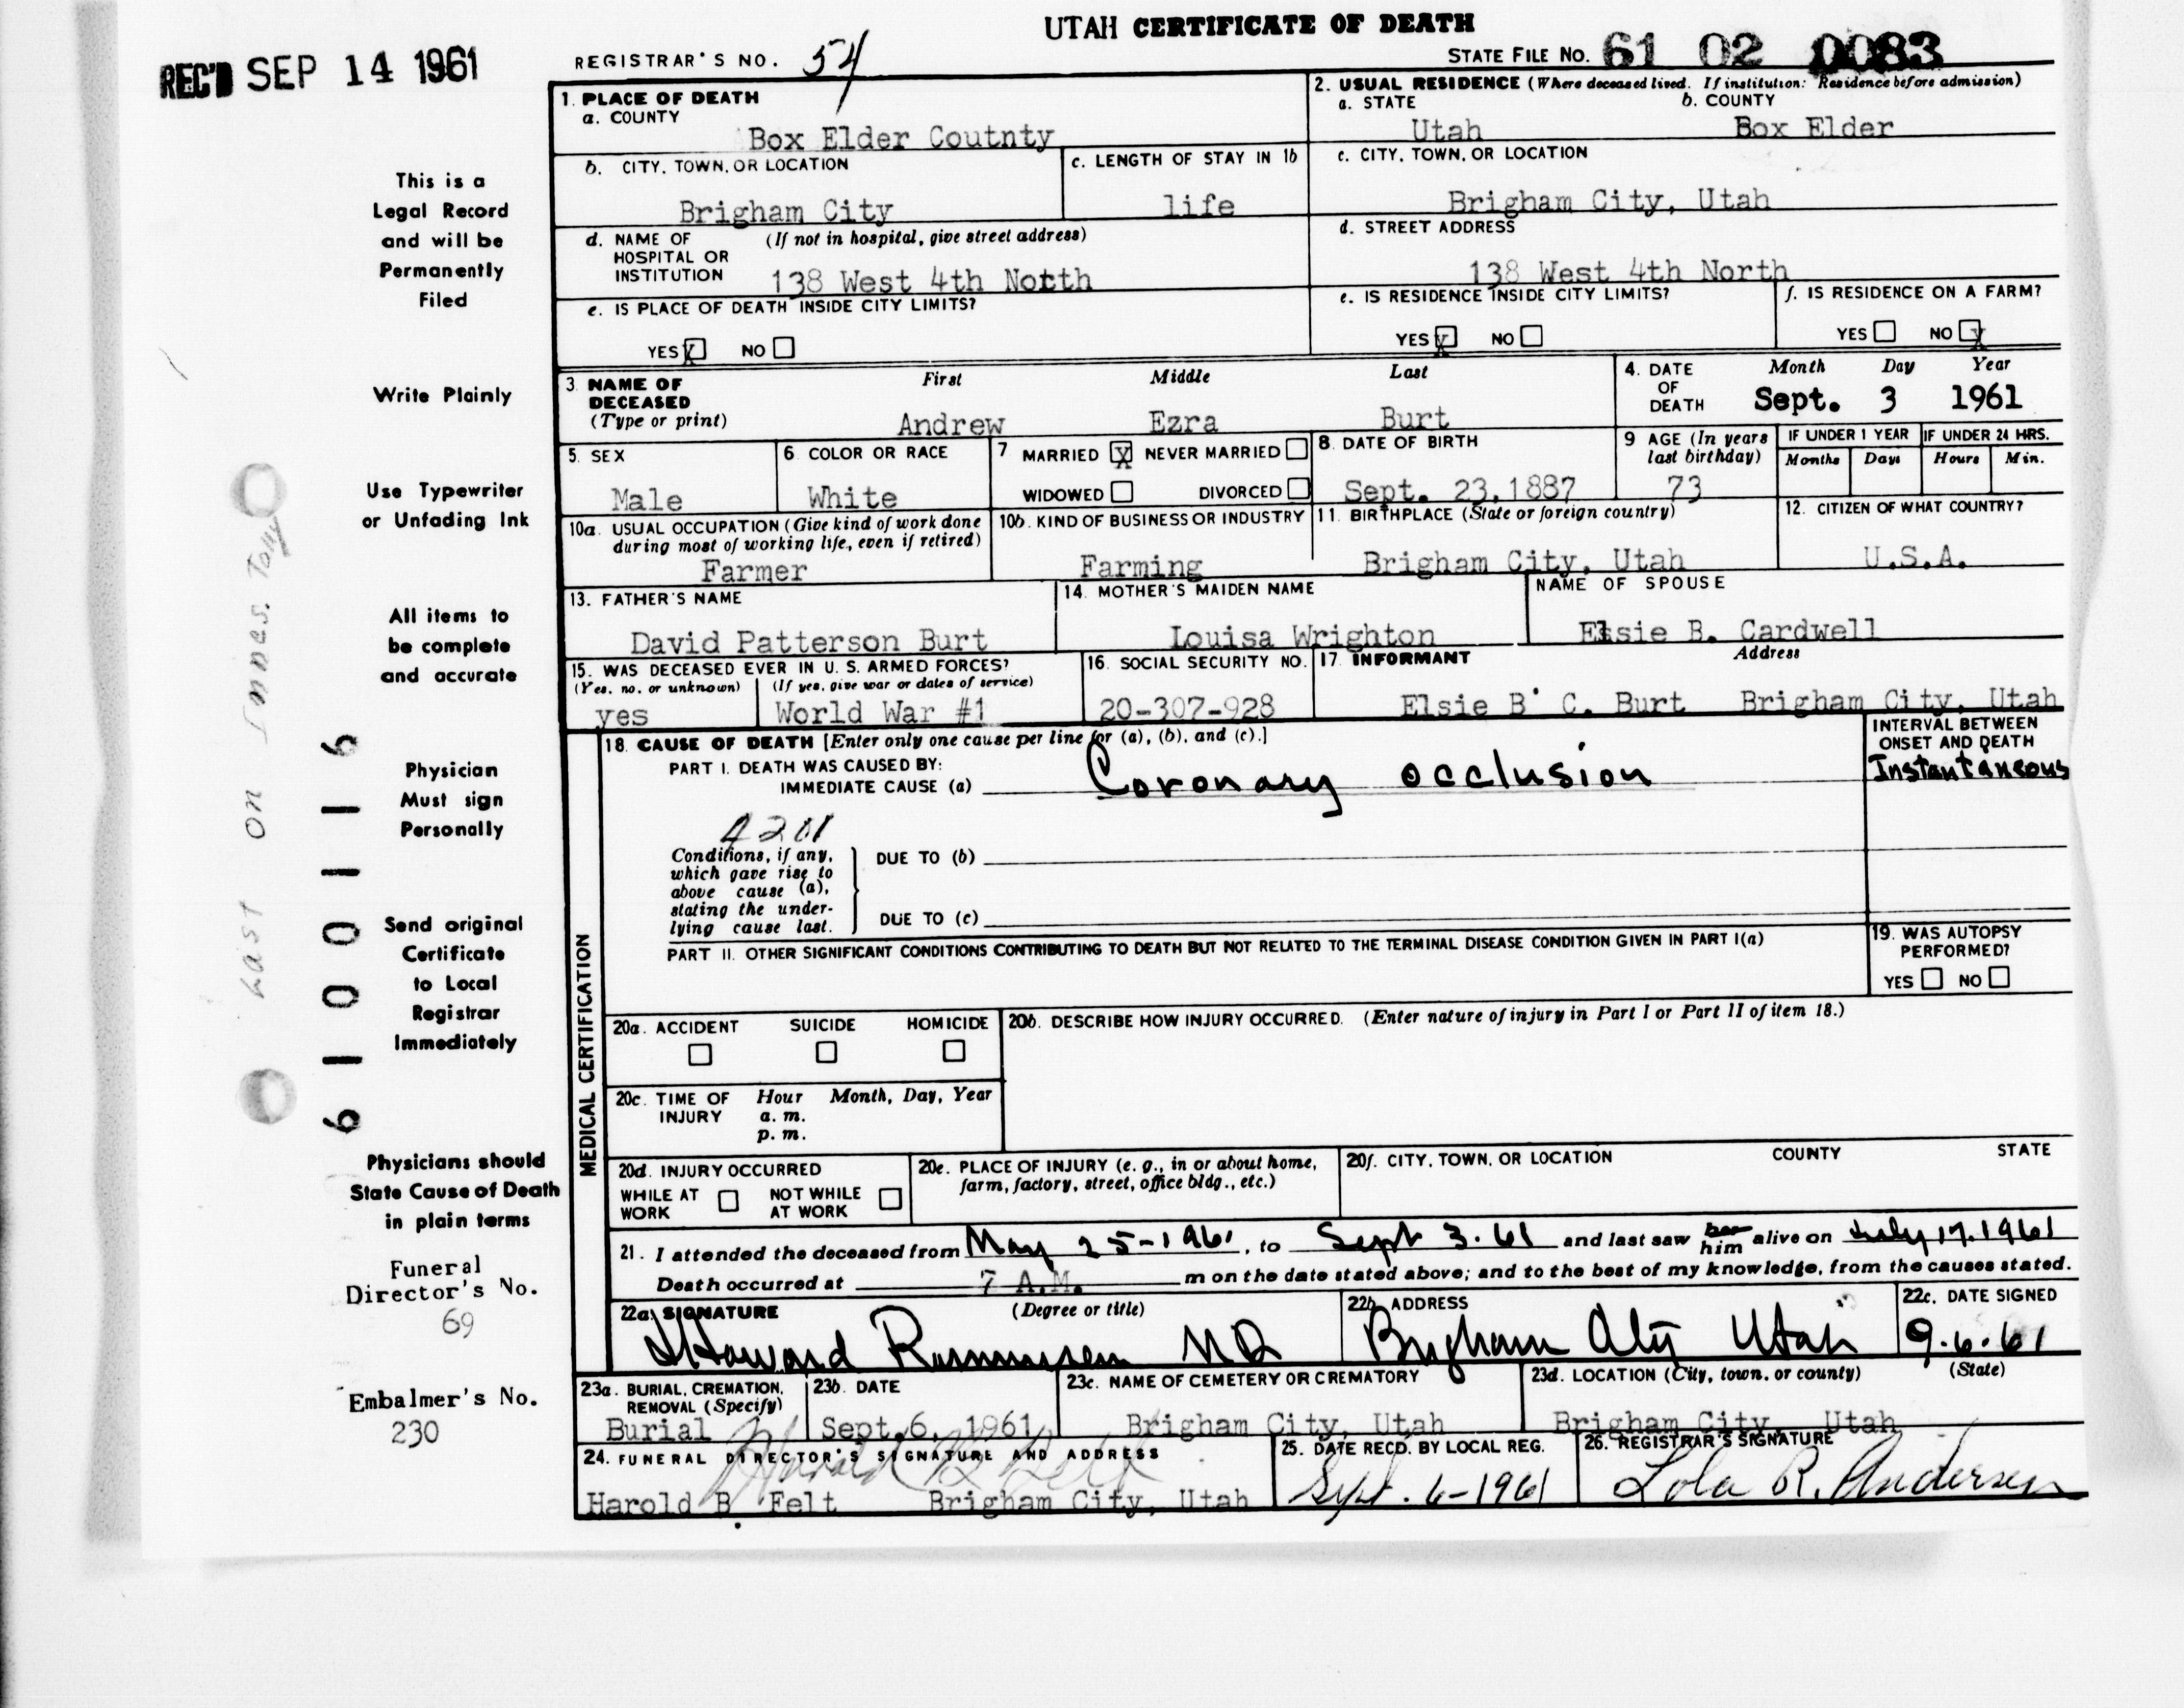 UTAH CERTIFICATE OF DEATH
REC'D SEP 14 1961
REGISTRAR'S NO. 54
STATE FILE NO. 61 02 0083
1. PLACE OF DEATH
a. COUNTY
Box Elder Coutnty
2. USUAL RESIDENCE (Where deceased lived. If institution: Residence before admission)
a. STATE b. COUNTY
Utah Box Elder
b. CITY, TOWN, OR LOCATION
Brigham City
c. LENGTH OF STAY IN 1b
life
c. CITY, TOWN, OR LOCATION
Brigham City, Utah
d. NAME OF (If not in hospital, give street address)
HOSPITAL OR
INSTITUTION 138 West 4th North
d. STREET ADDRESS
138 West 4th North
e. IS PLACE OF DEATH INSIDE CITY LIMITS?
YES X NO
e. IS RESIDENCE INSIDE CITY LIMITS?
YES X NO
f. IS RESIDENCE ON A FARM?
YES NO X
3. NAME OF DECEASED (Type or print)
First Middle Last
Andrew Ezra Burt
4. DATE OF DEATH
Month Day Year
Sept. 3 1961
5. SEX
Male
6. COLOR OR RACE
White
7 MARRIED X NEVER MARRIED
WIDOWED DIVORCED
8. DATE OF BIRTH
Sept. 23,1887
9 AGE (In years last birthday)
73
IF UNDER 1 YEAR IF UNDER 24 HRS.
Months Days Hours Min.
10a. USUAL OCCUPATION (Give kind of work done
during most of working life, even if retired)
Farmer
10b. KIND OF BUSINESS OR INDUSTRY
Farming
11. BIRTHPLACE (State or foreign country)
Brigham City, Utah
12. CITIZEN OF WHAT COUNTRY?
U.S.A.
13. FATHER'S NAME
David Patterson Burt
14. MOTHER'S MAIDEN NAME
Louisa Wrighton
NAME OF SPOUSE
Elsie B. Cardwell
15. WAS DECEASED EVER IN U. S. ARMED FORCES?
(Yes, no, or unknown) (If yes, give war or dates of service)
yes World War #1
16. SOCIAL SECURITY NO.
20-307-928
17. INFORMANT Address
Elsie B' C. Burt Brigham City, Utah
MEDICAL CERTIFICATION
18. CAUSE OF DEATH [Enter only one cause per line for (a), (b), and (c).]
PART I. DEATH WAS CAUSED BY:
IMMEDIATE CAUSE (a) Coronary occlusion
INTERVAL BETWEEN
ONSET AND DEATH
Instantaneous
4201
Conditions, if any,
which gave rise to
above cause (a),
stating the under-
lying cause last.
DUE TO (b)
DUE TO (c)
PART II. OTHER SIGNIFICANT CONDITIONS CONTRIBUTING TO DEATH BUT NOT RELATED TO THE TERMINAL DISEASE CONDITION GIVEN IN PART I(a)
19. WAS AUTOPSY
PERFORMED?
YES NO
20a. ACCIDENT SUICIDE HOMICIDE
20b. DESCRIBE HOW INJURY OCCURRED. (Enter nature of injury in Part I or Part II of item 18.)
20c. TIME OF INJURY
Hour Month, Day, Year
a. m.
p. m.
20d. INJURY OCCURRED
WHILE AT WORK NOT WHILE AT WORK
20e. PLACE OF INJURY (e. g., in or about home,
farm, factory, street, office bldg., etc.)
20f. CITY, TOWN, OR LOCATION COUNTY STATE
21. I attended the deceased from May 25-1961, to Sept 3.61 and last saw her him alive on July 17.1961
Death occurred at 7 A.M. m on the date stated above; and to the best of my knowledge, from the causes stated.
22a. SIGNATURE (Degree or title)
J Howard Rasmussen MD
22b. ADDRESS
Brigham City Utah
22c. DATE SIGNED
9.6.61
23a. BURIAL, CREMATION,
REMOVAL (Specify)
Burial
23b. DATE
Sept.6, 1961
23c. NAME OF CEMETERY OR CREMATORY
Brigham City, Utah
23d. LOCATION (City, town, or county) (State)
Brigham City, Utah
24. FUNERAL DIRECTOR'S SIGNATURE AND ADDRESS
Harold B Felt
Harold B Felt Brigham City, Utah
25. DATE RECD. BY LOCAL REG.
Sept. 6-1961
26. REGISTRAR'S SIGNATURE
Lola R. Andersen
This is a
Legal Record
and will be
Permanently
Filed
Write Plainly
Use Typewriter
or Unfading Ink
All items to
be complete
and accurate
Physician
Must sign
Personally
Send original
Certificate
to Local
Registrar
Immediately
Physicians should
State Cause of Death
in plain terms
Funeral
Director's No.
69
Embalmer's No.
230
61001116
Last on